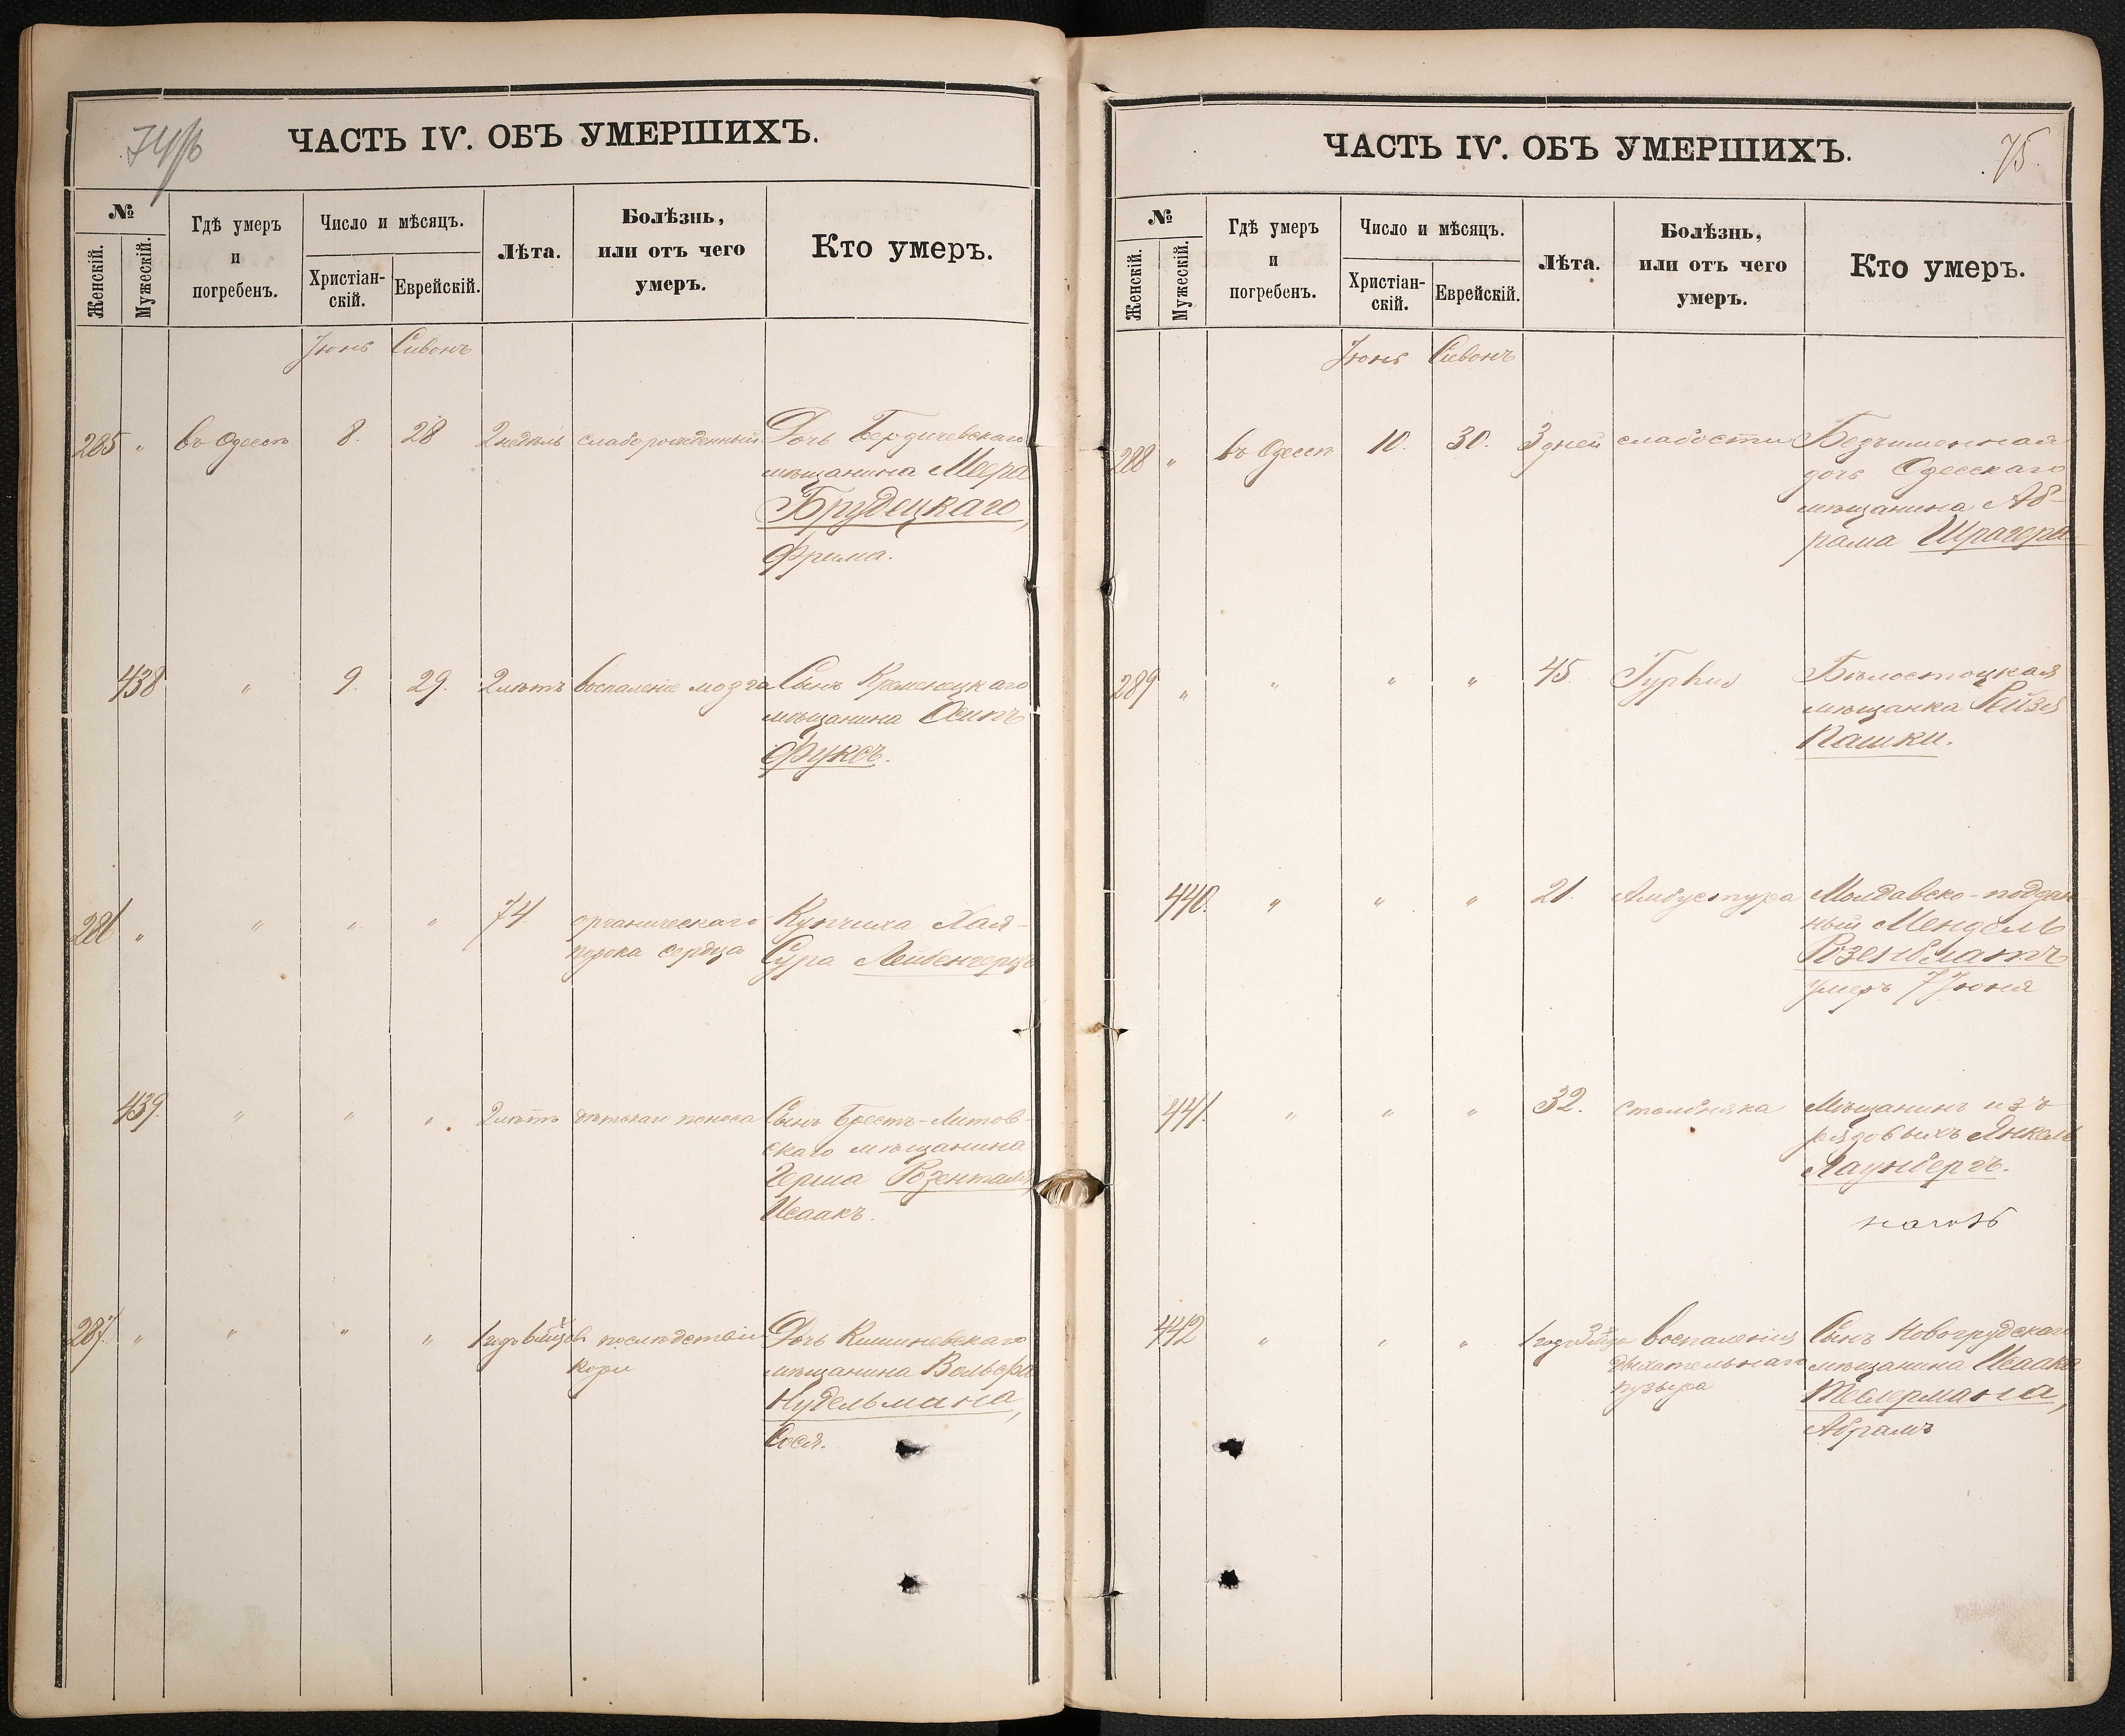 74об
ЧАСТЬ IV. ОБЪ УМЕРШИХЪ.
№
Женскій.
Мужескій.
Гдѣ умеръ
и
погребенъ.
Число и мѣсяцъ.
Христіан-
скій.
Еврейскій.
Лѣта.
Болѣзнь,
или отъ чего
умеръ.
Кто умеръ.
Іюнь Сивонъ
285 " въ Одессѣ 8. 28 2 недѣль слаборожденный Дочь Бердичевскаго
мѣщанина Меера
Брудецкаго,
Фрима.
438 " 9. 29. 2 лѣтъ воспаленіе мозга Сынъ Кременецкаго
мѣщанина Осипъ
Фуксъ.
286 " " " " 74 органическаго Купчиха Хая-
порока сердца Сура Лейбенгерцъ
439. " " " 2 лѣтъ дѣтскаго поноса Сынъ Брестъ-Литов-
скаго мѣщанина
Герша Розенталя,
Исаакъ.
287. " " " " 1 годъ послѣдствіи Дочь Кишиневскаго
кори мѣщанина Вольфа
Нудельмана,
Сося.
75.
ЧАСТЬ IV. ОБЪ УМЕРШИХЪ.
№
Женскій.
Мужескій.
Гдѣ умеръ
и
погребенъ.
Число и мѣсяцъ.
Христіан-
скій.
Еврейскій.
Лѣта.
Болѣзнь,
или отъ чего
умеръ.
Кто умеръ.
Іюнь Сивонъ
288 " въ Одессѣ 10. 30. 3 дней слабости Безъименная
дочь Одесскаго
мѣщанина Аб-
рама Шрагера
289 " " " " 45. Typhus Бѣлостоцкая
мѣщанка Рейзя
Пашки.
440. " " " 21. Амбустура Молдавско-поддан-
ный Мендель
Розенблатъ
умеръ 7 Іюня
441. " " " 32. столбняка Мѣщанинъ изъ
рядовыхъ Янкель
Лаунбергъ.
442 " " " 1 годъ воспаленія Сынъ Новогрудскаго
дыхательнаго мѣщанина Исаака
пузыра Телермана,
Абрамъ